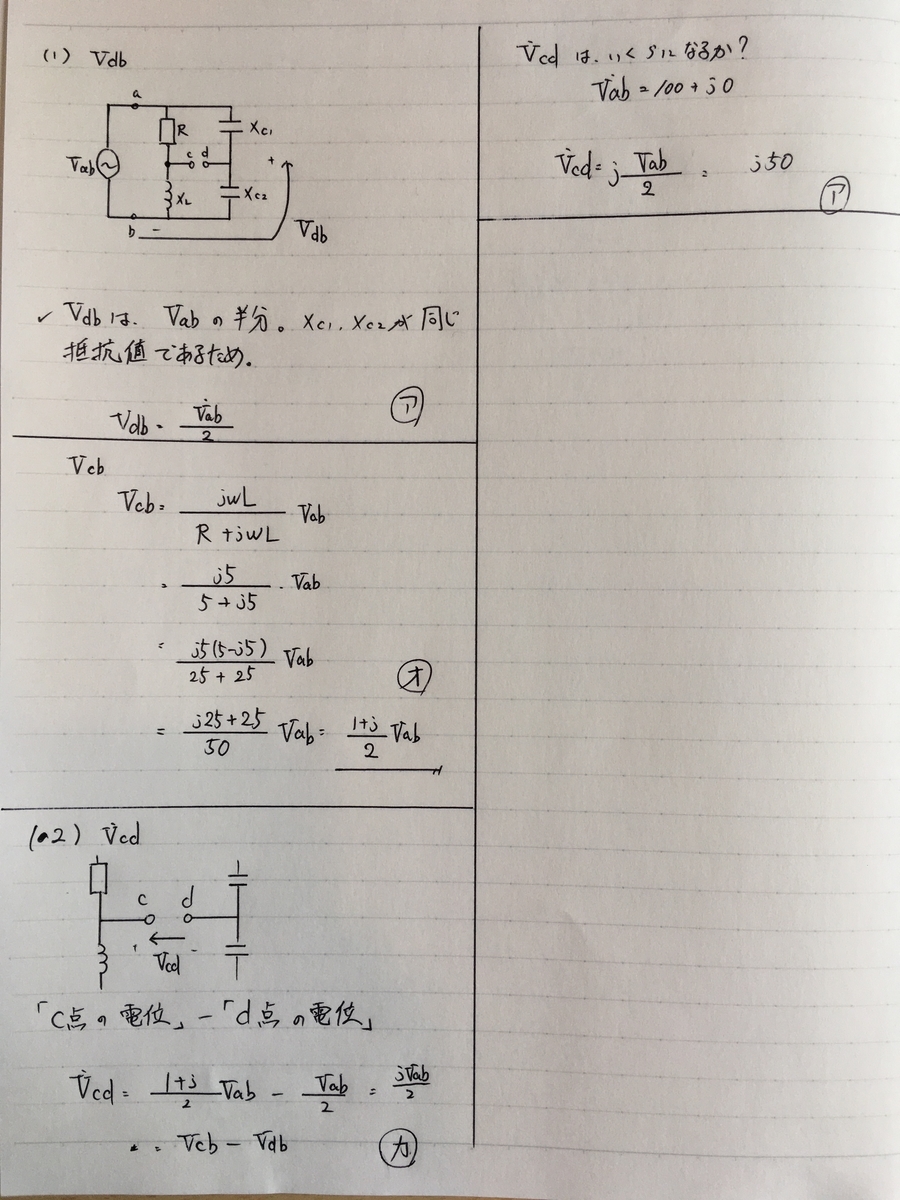 (1) Vdb
a
R
Xc1
c d
+
Vab
XL
Xc2
b -
Vdb
✓ Vdbは、Vabの半分。Xc1、Xc2が同じ
抵抗値であるため。
ア
Vdb = V̇ab/2
Vcb
Vcb = jwL/(R + jwL) Vab
= j5/(5 + j5) · Vab
= j5(5-j5)/(25 + 25) Vab
オ
= (j25+25)/50 Vab = (1+j)/2 Vab
(2) V̇cd
c d
+ -
Vcd
「c点の電位」-「d点の電位」
V̇cd = (1+j)/2 Vab - Vab/2 = jVab/2
= Vcb - Vdb
カ
V̇cd は、いくらになるか?
V̇ab = 100 + j0
V̇cd = j Vab/2 = j50
ア